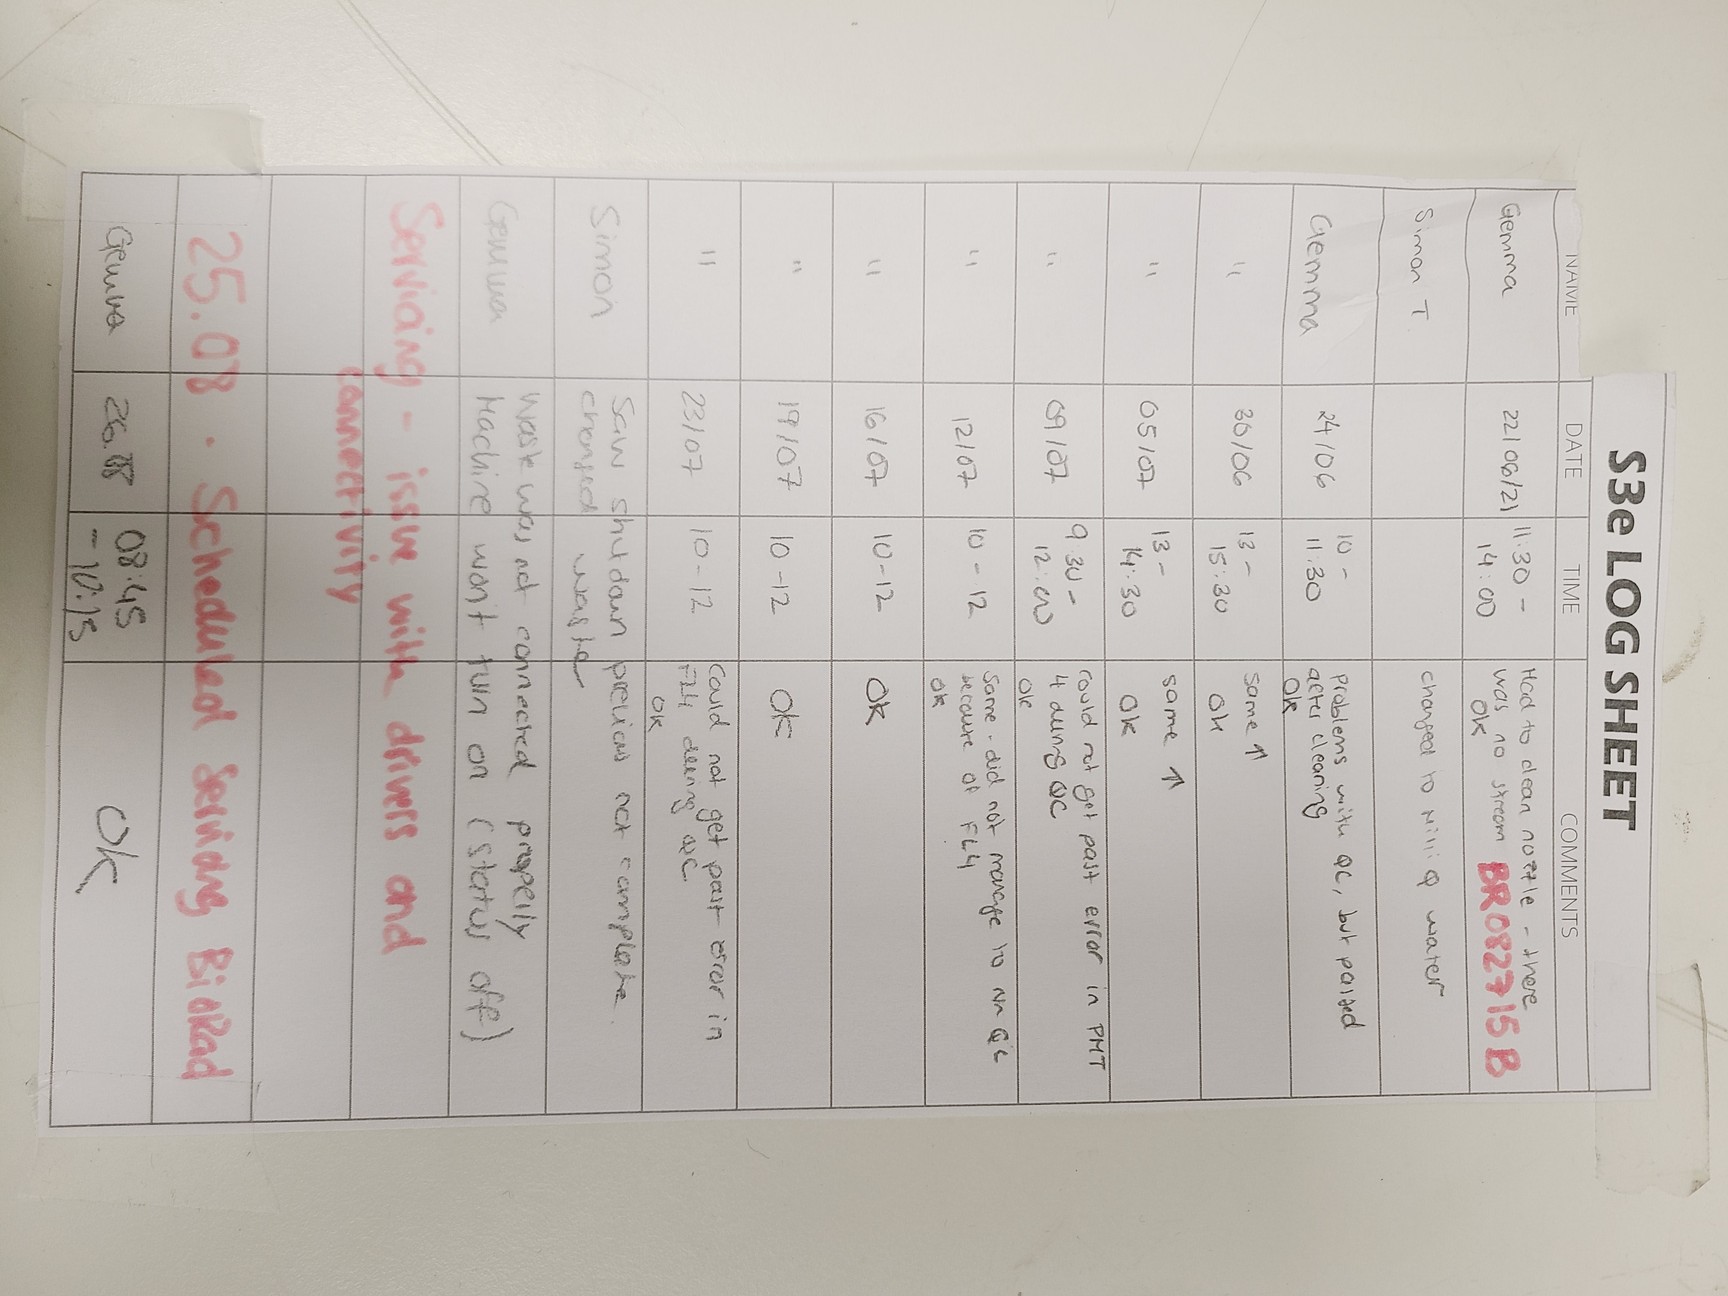 S3e LOG SHEET
NAME DATE TIME COMMENTS
Gemma 22/06/21 11:30 - 14:00 Had to clean nozzle - there
was no stream BR082715B
OK
Simon T. changed to Milli Q water
Gemma 24/06 10 - 11:30 problems with QC, but passed
after cleaning
OK
" 26/06 13 - 15:30 same ↑
OK
" 05/07 13 - 14:30 same ↑
OK
" 09/07 9:30 - 12:00 Could not get past error in PMT
4 during QC
OK
" 12/07 10 - 12 Same - did not manage to run QC
because of FL4
OK
" 16/07 10-12 OK
" 19/07 10-12 OK
" 23/07 10-12 Could not get past error in
FL4 during QC.
OK
Simon Saw shutdown previous not complete.
changed waste
Gemma Waste was not connected properly
Machine won't turn on (status off)
Servicing - issue with drivers and
connectivity
25.08. Scheduled Serving BioRad
Gemma 26.08 08:45
- 10:15 OK